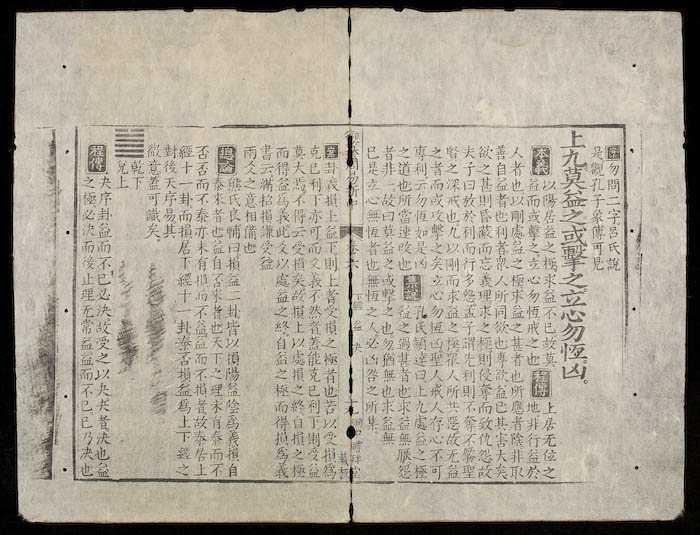 案勿問二字呂氏說
是觀孔子象傳可見
上九莫益之或擊之立心勿恆凶
本義以陽居益之極求益不已故莫
益而或擊之立心勿恆戒之也
程傳上居无位之
地非行益於
人者也以剛處益之極求益之甚者也所應者陰非取
善自益者也利者衆人所同欲也專欲益己其害大矣
欲之甚則昏蔽而忘義理求之極則侵奪而致仇怨故
夫子曰放於利而行多怨孟子謂先利則不奪不饜聖
賢之深戒也九以剛而求益之極衆人所共惡故无益
之者而或攻擊之矣立心勿恆凶聖人戒人存心不可
專利云勿恆如是凶
之道也所當速改也
集說孔氏穎達曰上九處益之極
益之過甚者也求益無厭怨
者非一故曰莫益之或擊之也勿猶無也求益無
已是立心無恆者也無恆之人必凶咎之所集
卷六
益 夬
案卦義損上益下則上者受損之極者也若以受損爲義
克己利下亦可而文義不然者蓋能克己利下則受益
莫大焉不得云受損矣故損上以處損之終自損之極
而得益爲義此爻以處益之終自益之極而得損爲義
書云滿招損謙受益
兩爻之意相備也
總論熊氏良輔曰損益二卦皆以損陽益陰爲義損自
泰來者也益自否來者也天下之理未有泰而不
否否而不泰亦未有損而不益益而不損者故泰居上
經十一卦而損居下經十一卦泰否損益爲上下經之
對後天序易其
微意蓋可識矣
乾下
兌上
程傳夬序卦益而不已必決故受之以夬夬者決也益
之極必決而後止理无常益益而不已已乃決也